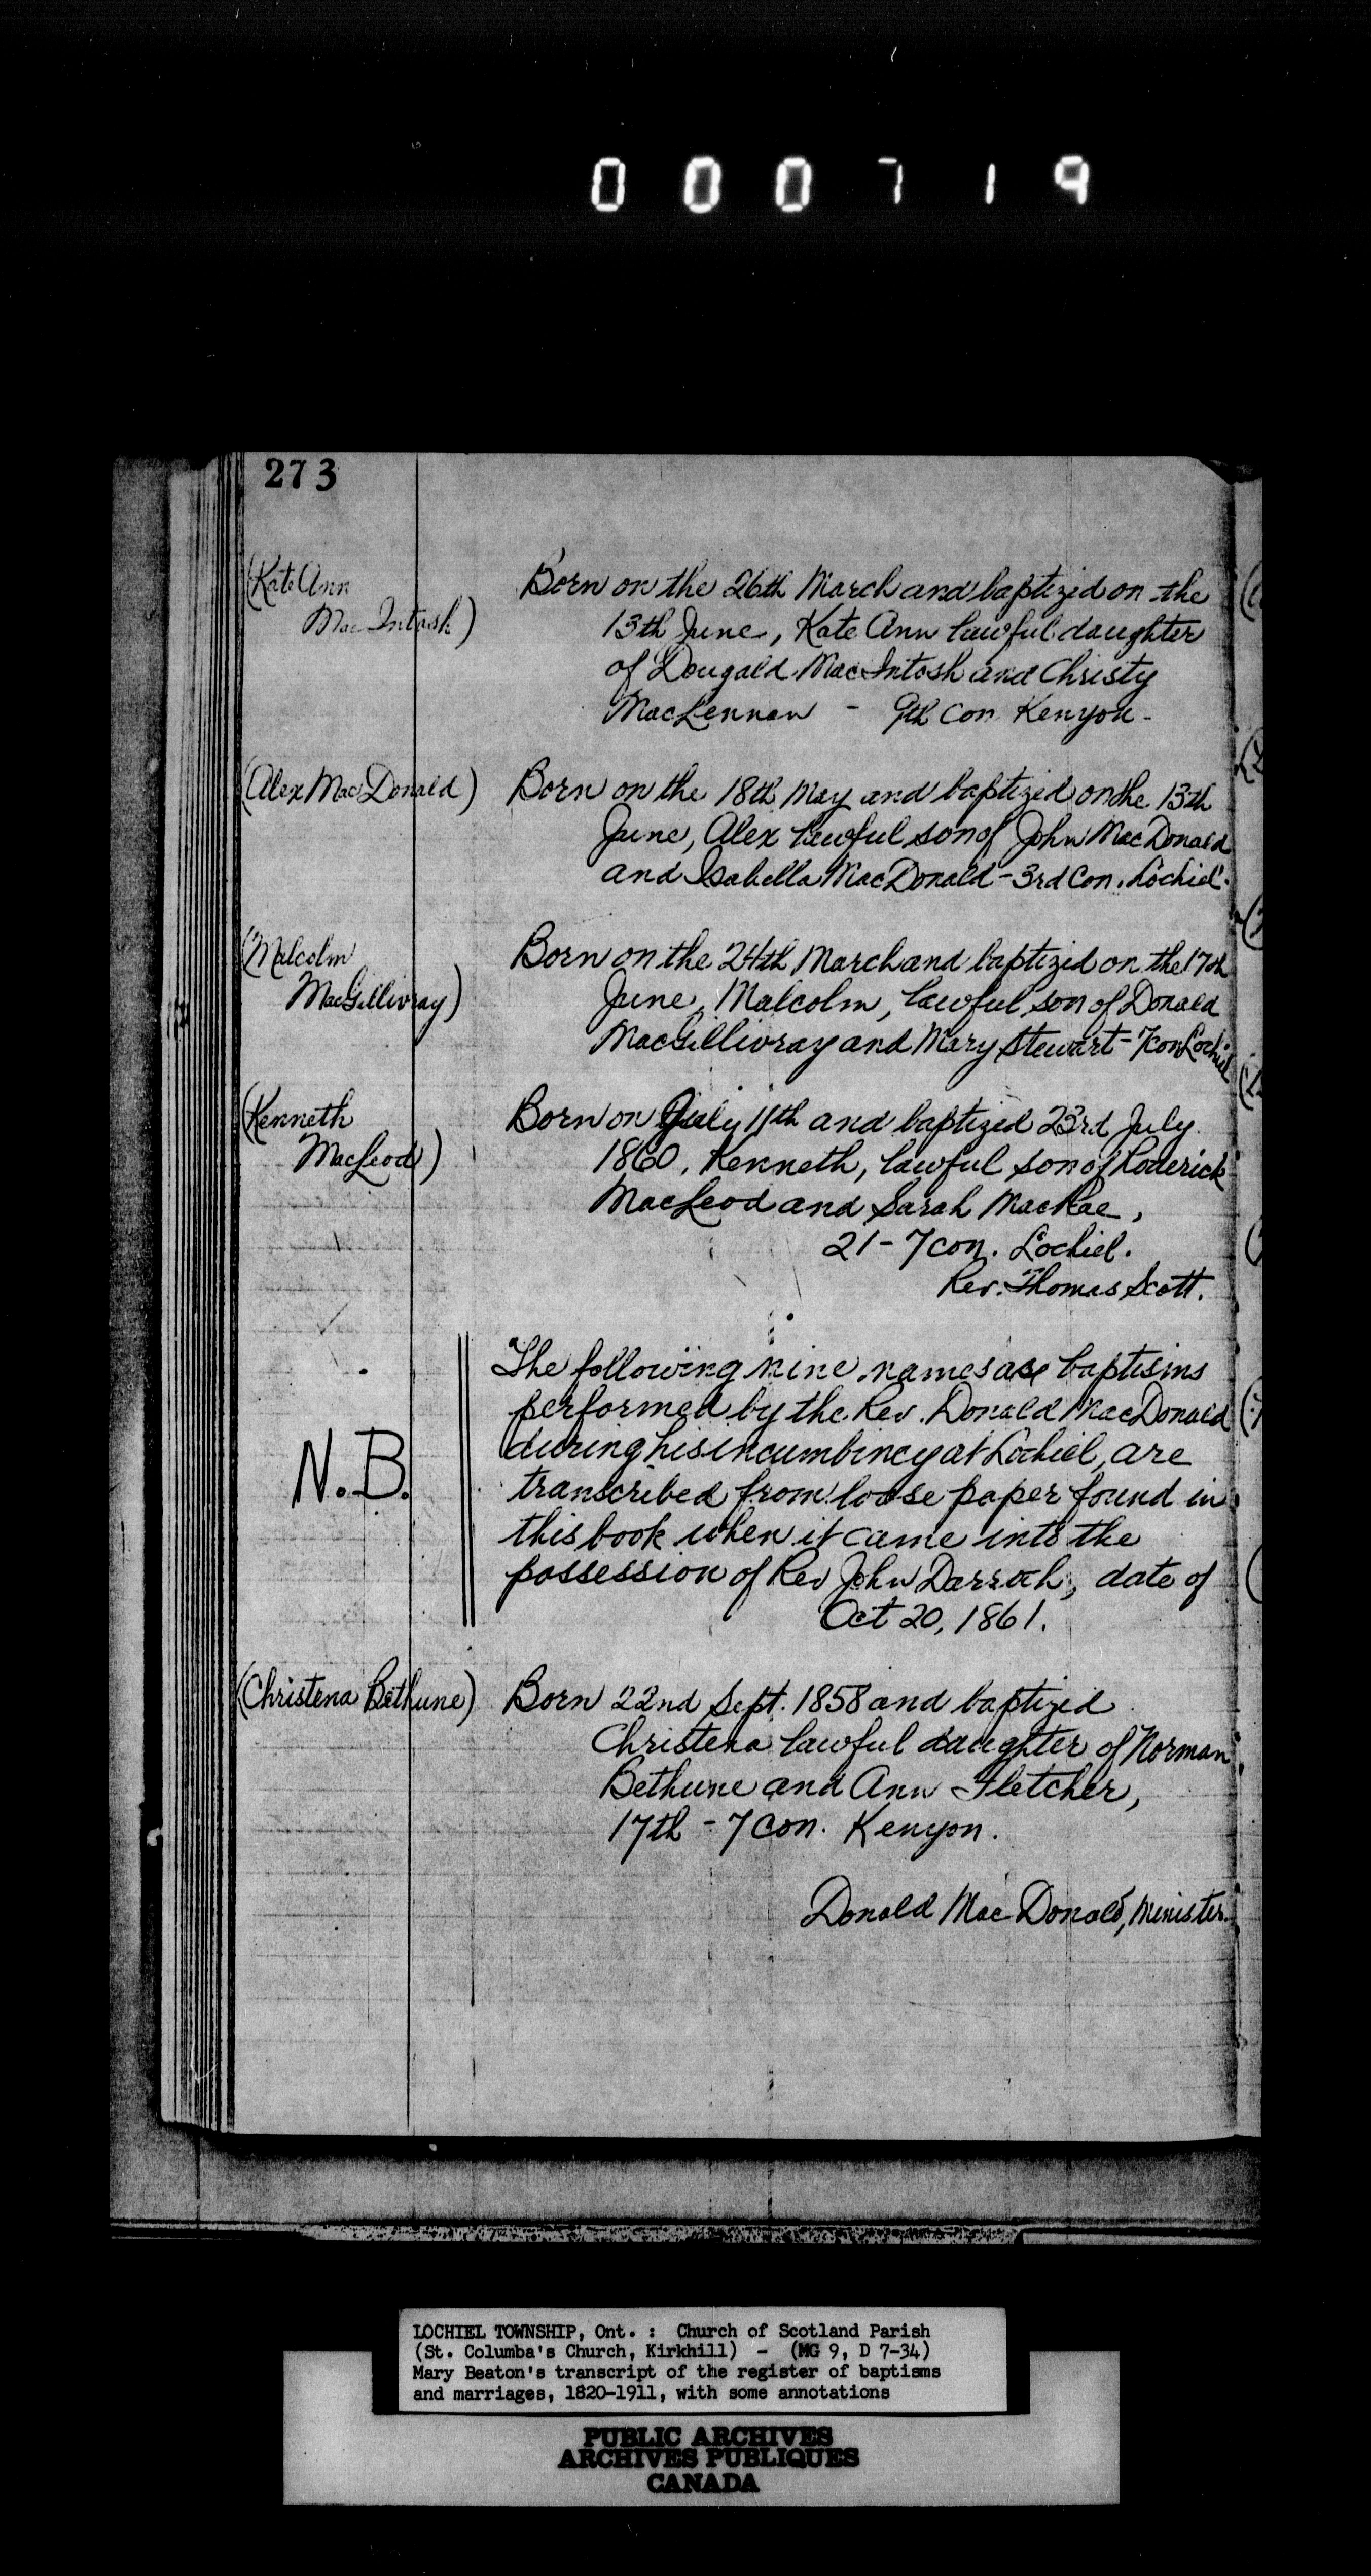 000719
273
(Kate Ann
MacIntosh)
Born on the 26th March and baptized on the
13th June, Kate Ann lawful daughter
of Dougald MacIntosh and Christy
MacLennan - 9th Con Kenyon -
(Alex MacDonald)
Born on the 18th May and baptized on the 13th
June, Alex lawful son of John MacDonald
and Isabella MacDonald - 3rd Con. Lochiel.
(Malcolm
MacGillivray)
Born on the 24th March and baptized on the 17th
June, Malcolm, lawful son of Donald
MacGillivray and Mary Stewart - 7 con Lochiel
(Kenneth
MacLeod)
Born on July 11th and baptized 23rd July
1860, Kenneth, lawful son of Roderick
MacLeod and Sarah MacRae,
21 - 7 con. Lochiel.
Rev. Thomas Scott.
N.B.
The following nine names are baptisms
performed by the Rev. Donald MacDonald
during his incumbincy at Lochiel, are
transcribed from loose paper found in
this book when it came into the
possession of Rev John Darroch, date of
Oct 20, 1861.
(Christena Bethune)
Born 22nd Sept. 1858 and baptized
Christena lawful daughter of Norman
Bethune and Ann Fletcher,
17th - 7 Con. Kenyon.
Donald MacDonald, Minister.
LOCHIEL TOWNSHIP, Ont. : Church of Scotland Parish
(St. Columba's Church, Kirkhill) - (MG 9, D 7-34)
Mary Beaton's transcript of the register of baptisms
and marriages, 1820-1911, with some annotations
PUBLIC ARCHIVES
ARCHIVES PUBLIQUES
CANADA